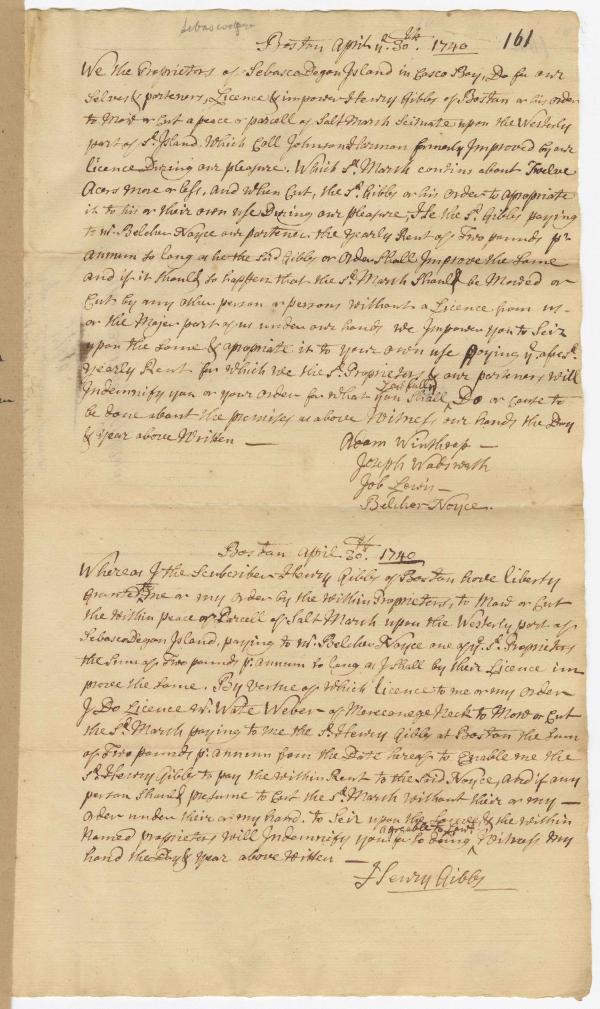 Sebascodegan
161
Boston April ye. 30th. 1740
We the Proprietors of SebascoDegon Island in Casco Bay, Do for our
Selves & parteners, Licence & impower Henry Gibbs of Boston or his order
to Mow or Cut a peace or parcell of Salt Marsh Scituate upon the Westerly
part of Sd. Island, Which Call Johnson Harman formerly Improved by our
licence During our pleasure. Which Sd. Marsh contins about Twelve
Acers more or less, and When Cut, the Sd. Gibbs or his order to apropriate
it to his or their own use During our pleasure, He the Sd. Gibbs paying
to Mr. Belcher Noyce our partener the yearly Rent of Two pounds pr.
annum so long as he the Said Gibbs or order Shall Improve the Same
and if it Should so happen that the Sd. Marsh Should be Mowed or
Cut by any other person or persons without a Licence from us
or the Major part of us under our hands we Impower you to Seiz
upon the Same & apropriate it to your own use paying ye. afores.
yearly Rent for which we the Sd. Proprietors & our parteners will
Indemnify you or your order for what you Shall Lawfully Do or cause to
be done about the premises as above Witness our hands the Day
& year above Written —
Adam Winthrop —
Joseph Wadsworth
Job Lewis —
Belcher Noyce.
Boston April 30th. 1740
Whereas I the Scubscriber Henry Gibbs of Boston have liberty
granted me or my order by the within Proprietors, to Mow or Cut
the within peace or Parcell of Salt Marsh upon the Westerly part of
SebascoDegon Island, paying to Mr. Belcher Noyce one of ye. Sd. Proprietors
the Sum of Two pounds pr. annum so long as I Shall by their Licence im
prove the Same. By vertue of Which licence to me or my order
I Do Licence Mr. Wate Weber of Mereconege Neck to Mow or Cut
the Sd. Marsh paying to me the Sd. Henry Gibbs at Boston the Sum
of Two pounds pr. annum from the Date hereof to Enable me the
Sd. Henry Gibbs to pay the within Rent to the Said Noyce, and if any
person Should presume to Cut the Sd. Marsh without their or my —
order under their or my hand. to Seiz upon the Same & the within
Named proprietors will Indemnify you for so doing agreable to Law. Witness my
hand the Day & Year above Written —
Henry Gibbs